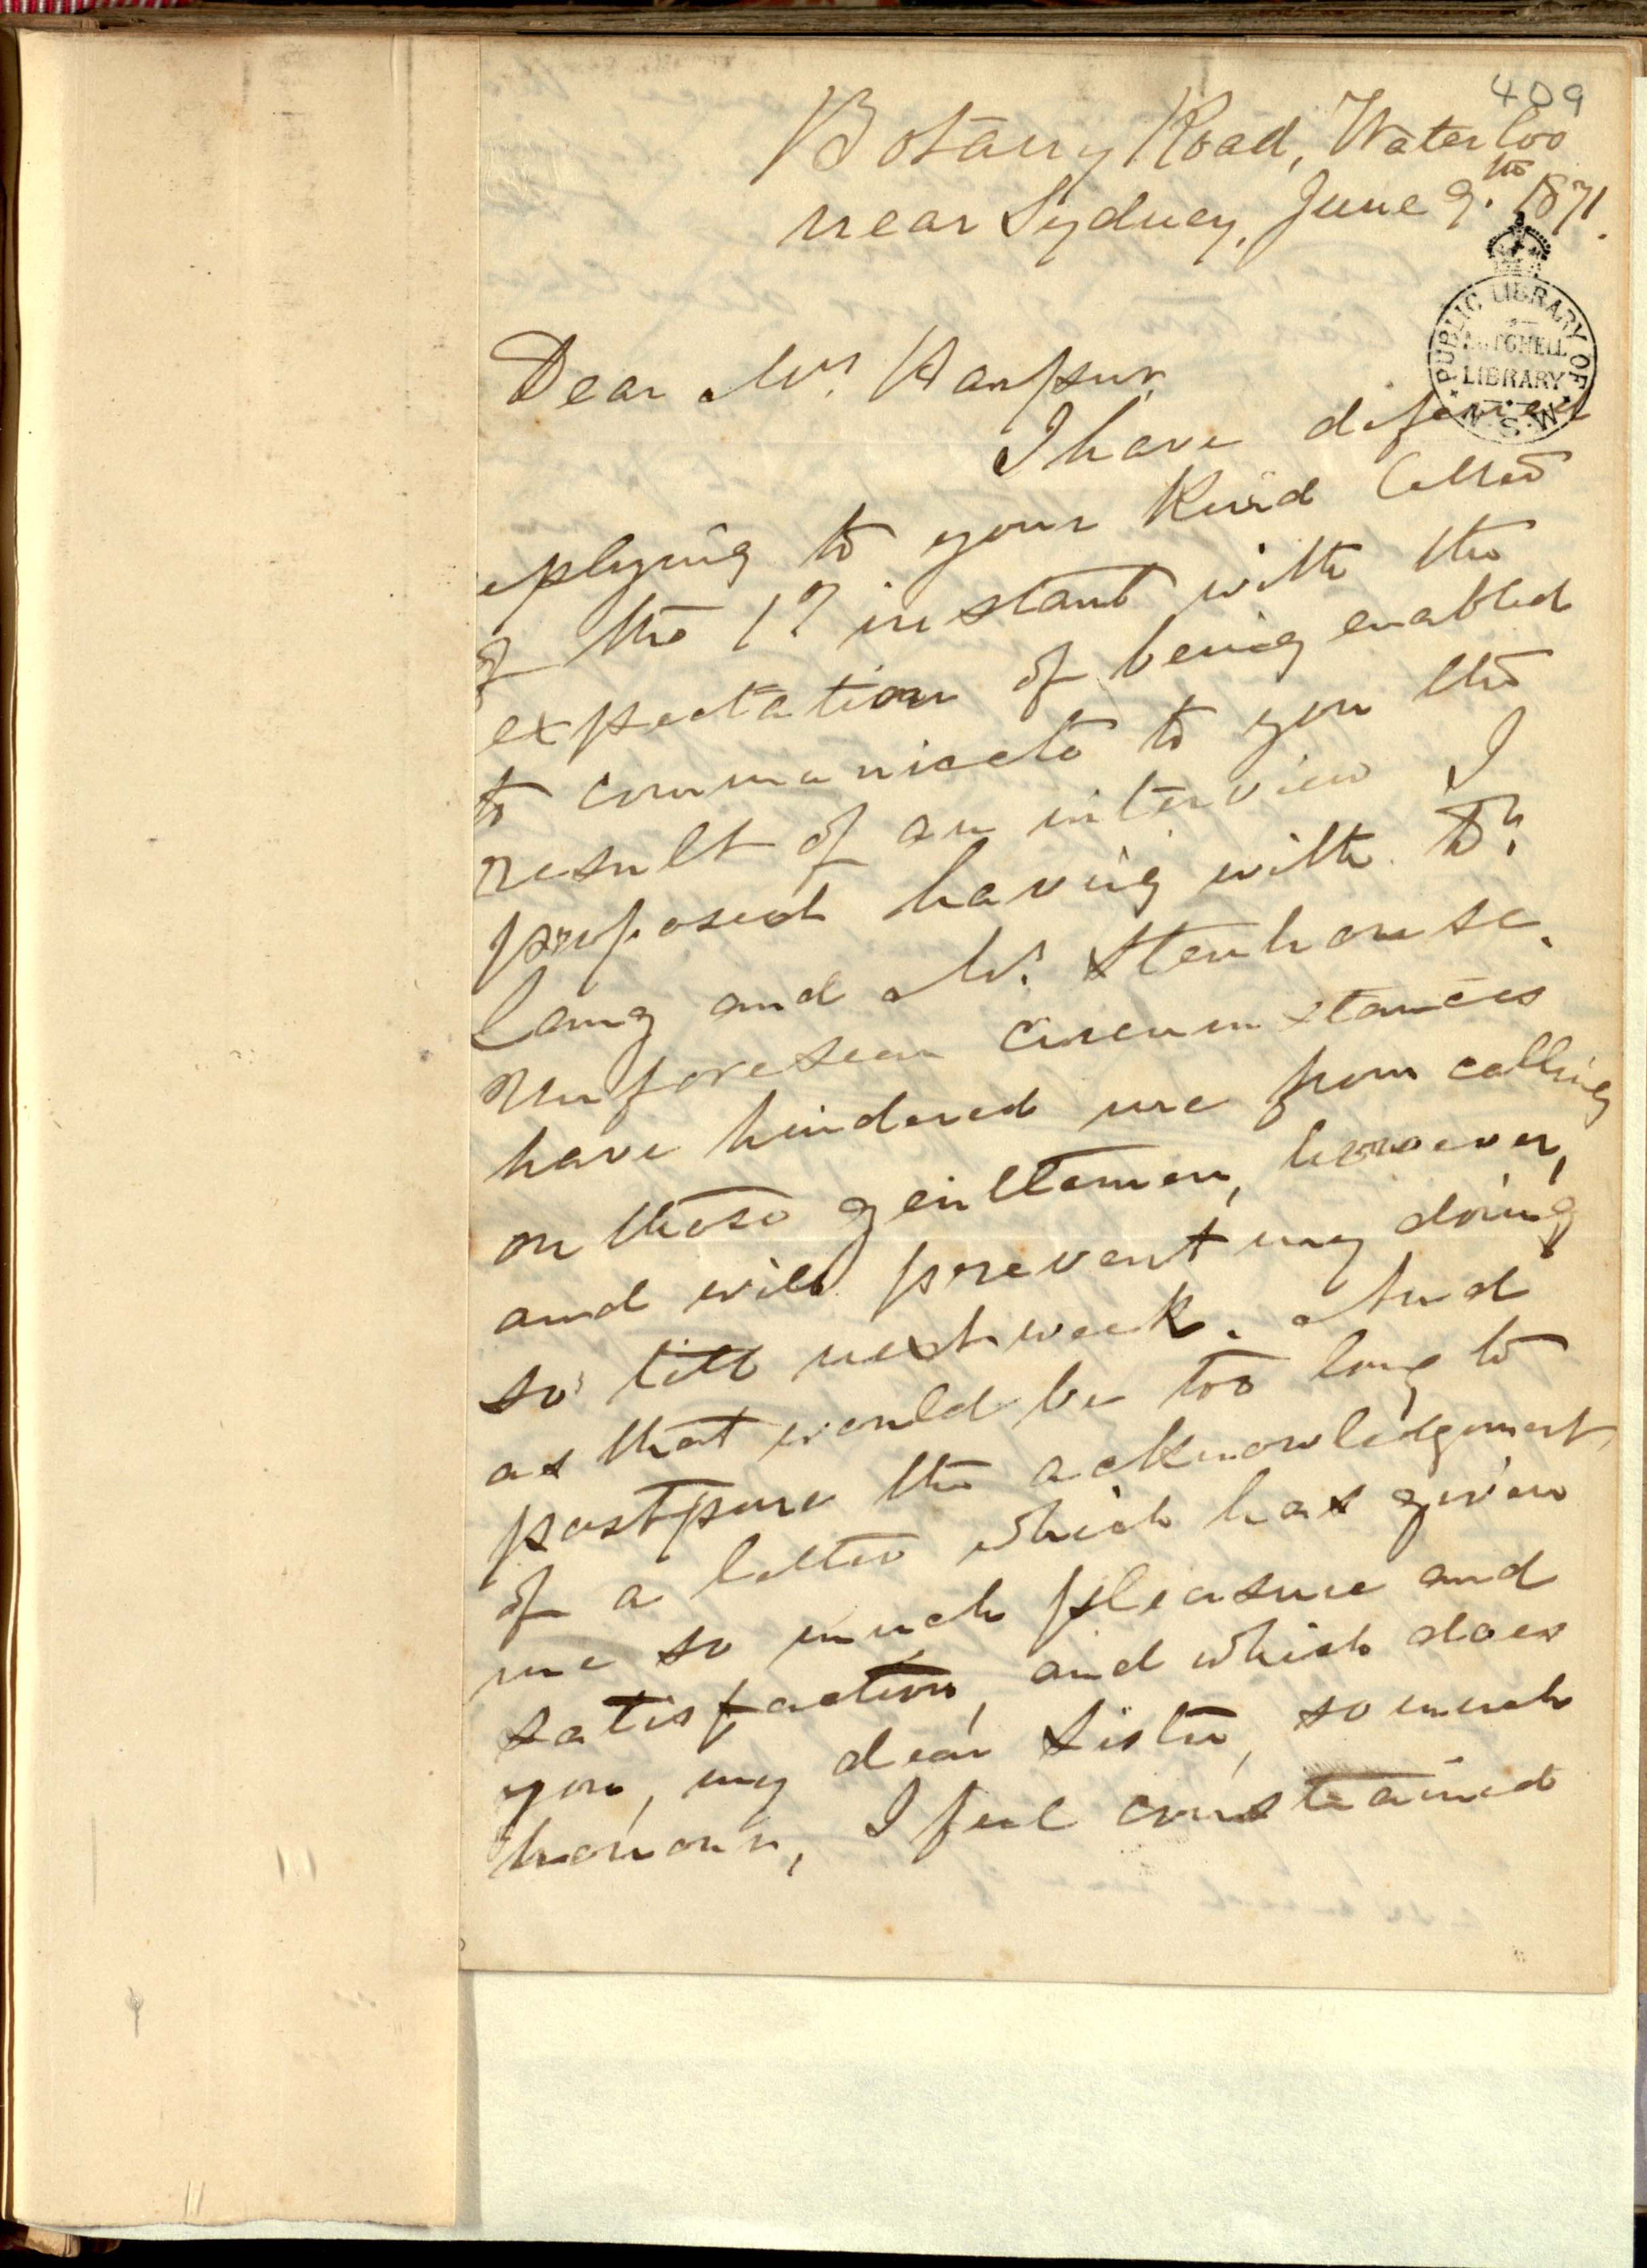 409
Botany Road, Waterloo
near Sydney, June 9th 1871.
PUBLIC LIBRARY OF N.S.W.
MITCHELL
LIBRARY
Dear Mrs. Harpur,
I have deferred
eplying to your kind letter
of the 1? instant with the
expectation of being enabled
to communicate to you the
result of an interview I
proposed having with Dr.
Lang and Mr. Stenhouse.
Unforeseen circumstances
have hindered me from calling
on those gentlemen, however,
and will prevent my doing
so till next week. And
as that would be too long to
postpone the acknowledgement
of a letter which has given
me so much pleasure and
satisfaction, and which does
you, my dear Sister, so much
honour, I feel constrained